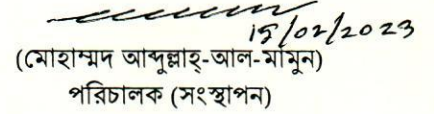 15/02/2023
(মোহাম্মদ আব্দুল্লাহ্-আল-মামুন)
পরিচালক (সংস্থাপন)